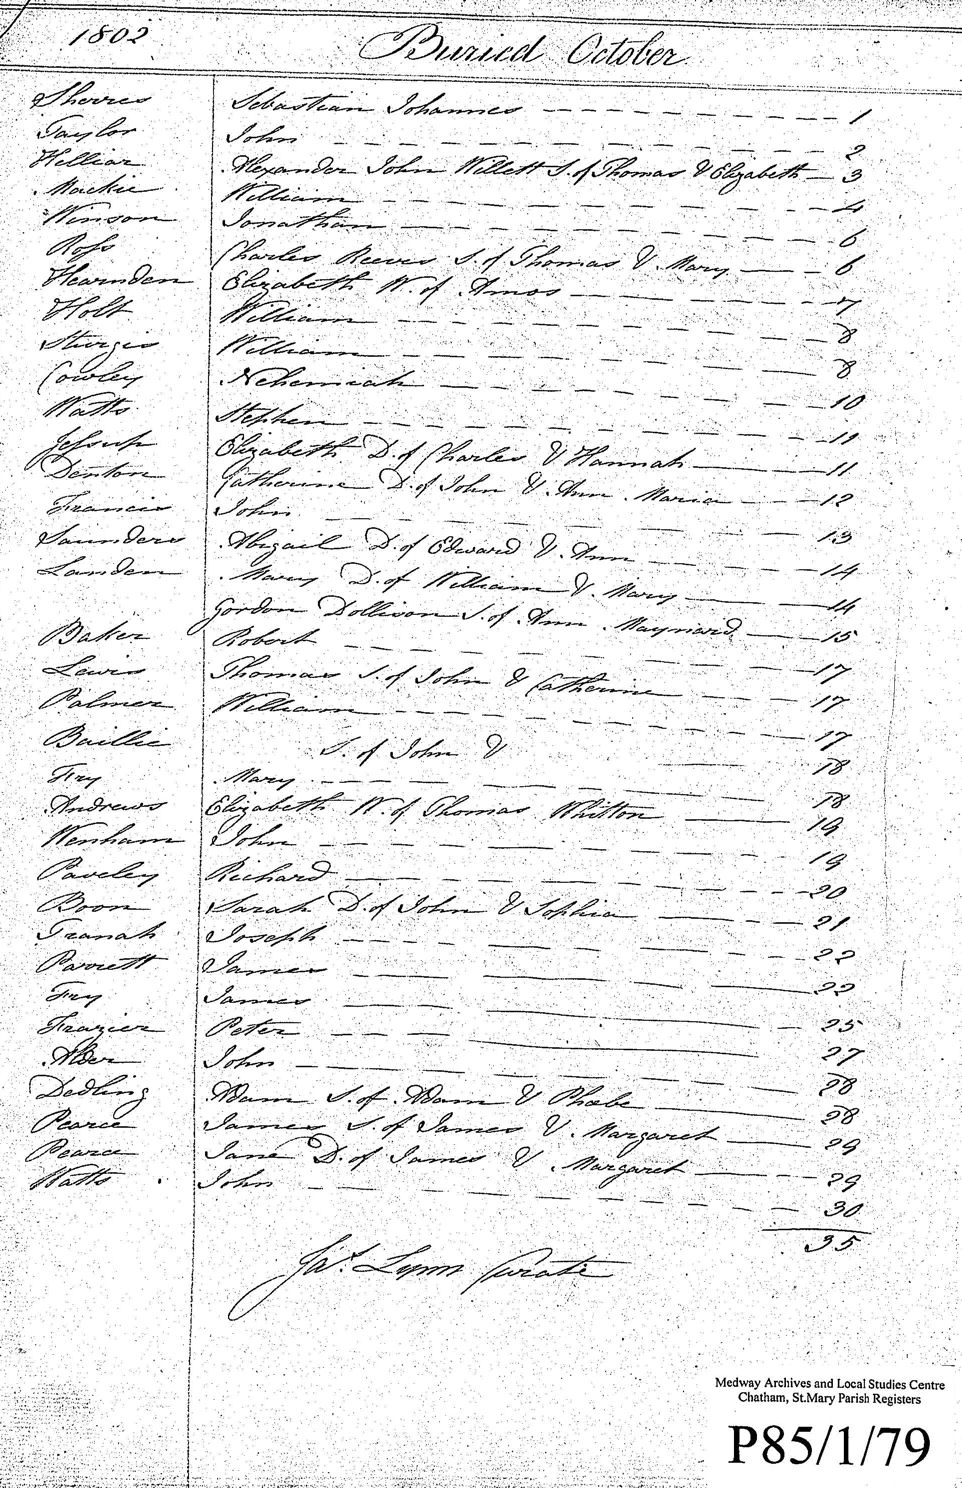 1802 Buried October
Sherres Sebastian Johannes 1
Taylor John 2
Helliar Alexander John Willett S. of Thomas & Elizabeth 3
Mackie William 4
Winson Jonathan 6
Ross Charles Reeves S. of Thomas & Mary 6
Hearnden Elizabeth W. of Amos 7
Holt William 8
Sturgis William 8
Cowley Nehemiah 10
Watts Stephen 11
Jessup Elizabeth D. of Charles & Hannah 11
Denton Catherine D. of John & Ann Maria 12
Francis John 13
Saunders Abigail D. of Edward & Ann 14
Landen Mary D. of William & Mary 14
Gordon Dollison S. of Ann Maynard 15
Baker Robert 17
Lewis Thomas S. of John & Catherine 17
Palmer William 17
Baillie S. of John & 18
Fry Mary 18
Andrews Elizabeth W. of Thomas Whitton 19
Wenham John 19
Paveley Richard 20
Boon Sarah D. of John & Sophia 21
Tranah Joseph 22
Parrett James 22
Fry James 25
Frazier Peter 27
Alder John 28
Dedling Adam S. of Adam & Phœbe 28
Pearce James S. of James & Margaret 29
Pearce Jane D. of James & Margaret 29
Watts John 30
35
Jas. Lynn Curate
Medway Archives and Local Studies Centre
Chatham, St.Mary Parish Registers
P85/1/79